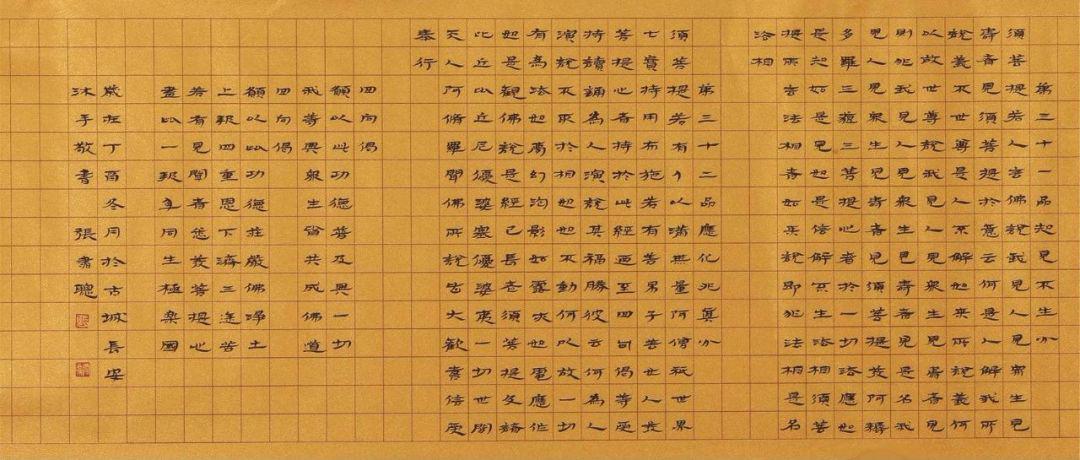 第三十一品知見不生分
須菩提若人言佛說我見人見眾生見
壽者見須菩提於意云何是人解我所
說義不世尊是人不解如來所說義何
以故世尊說我見人見眾生見壽者見
即非我見人見眾生見壽者見是名我
見人見眾生見壽者見須菩提發阿耨
多羅三藐三菩提心者於一切法應如
是知如是見如是信解不生法相須菩
提所言法相者如來說即非法相是名
法相
第三十二品應化非真分
須菩提若有人以滿無量阿僧祇世界
七寶持用布施若有善男子善女人發
菩提心者持於此經乃至四句偈等受
持讀誦為人演說其福勝彼云何為人
演說不取於相如如不動何以故一切
有為法如夢幻泡影如露亦如電應作
如是觀佛說是經已長老須菩提及諸
比丘比丘尼優婆塞優婆夷一切世間
天人阿修羅聞佛所說皆大歡喜信受
奉行
回向偈
願以此功德普及與一切
我等與眾生皆共成佛道
回向偈
願以此功德莊嚴佛淨土
上報四重恩下濟三途苦
若有見聞者悉發菩提心
盡此一報身同生極樂國
歲在丁酉冬月於古城長安
沐手敬書 張書聰